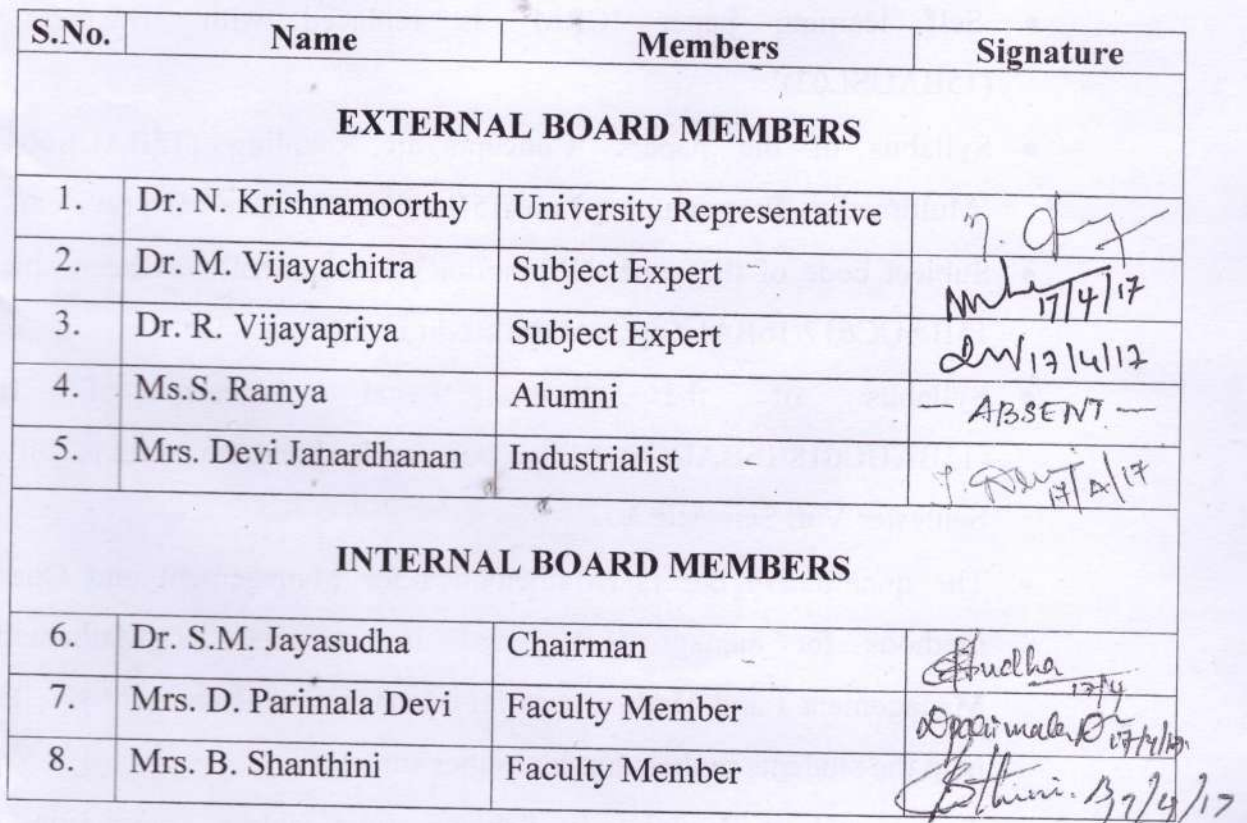 S.No. Name Members Signature
EXTERNAL BOARD MEMBERS
1. Dr. N. Krishnamoorthy University Representative
2. Dr. M. Vijayachitra Subject Expert 17/4/17
3. Dr. R. Vijayapriya Subject Expert 17/4/17
4. Ms.S. Ramya Alumni — ABSENT —
5. Mrs. Devi Janardhanan Industrialist 17/4/17
INTERNAL BOARD MEMBERS
6. Dr. S.M. Jayasudha Chairman 17/4
7. Mrs. D. Parimala Devi Faculty Member 17/4/17
8. Mrs. B. Shanthini Faculty Member